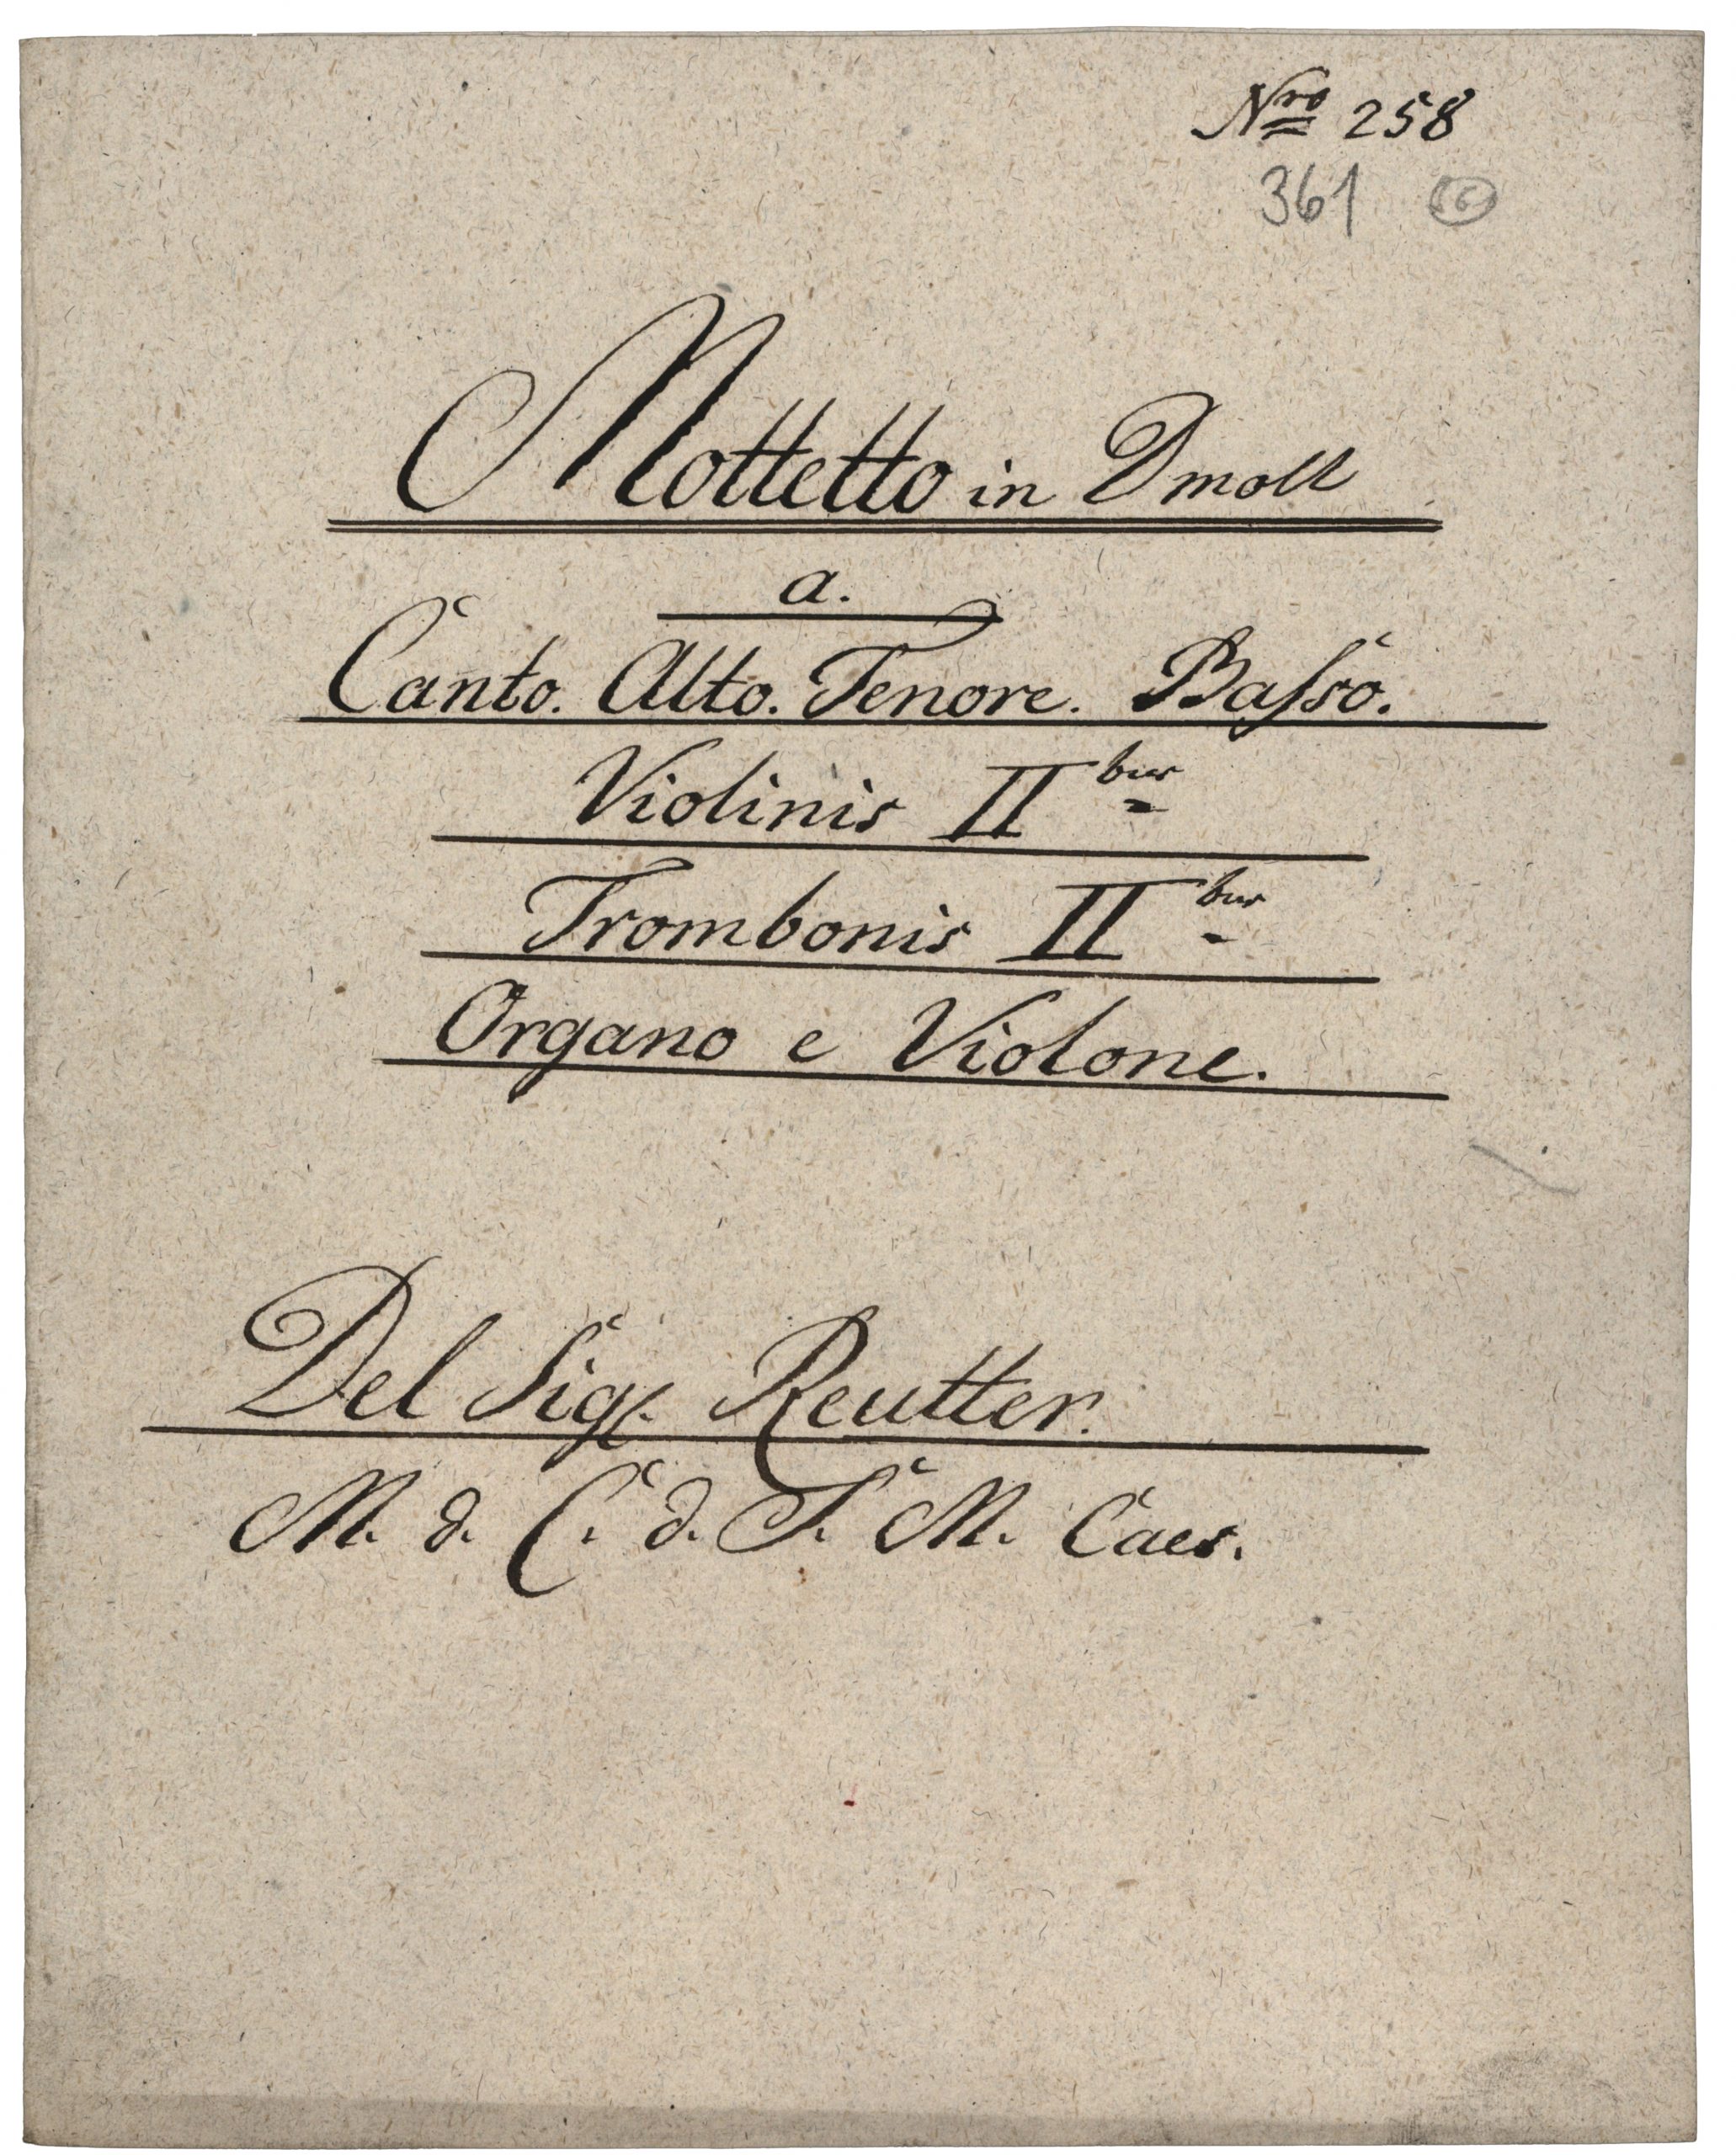 Nro 258
361
Mottetto in D moll
a.
Canto. Alto. Tenore. Baſso.
Violinis II bus
Trombonis II bus
Organo e Violone.
Del Sigr. Reutter.
M. d. C. d. S. M. Caes.